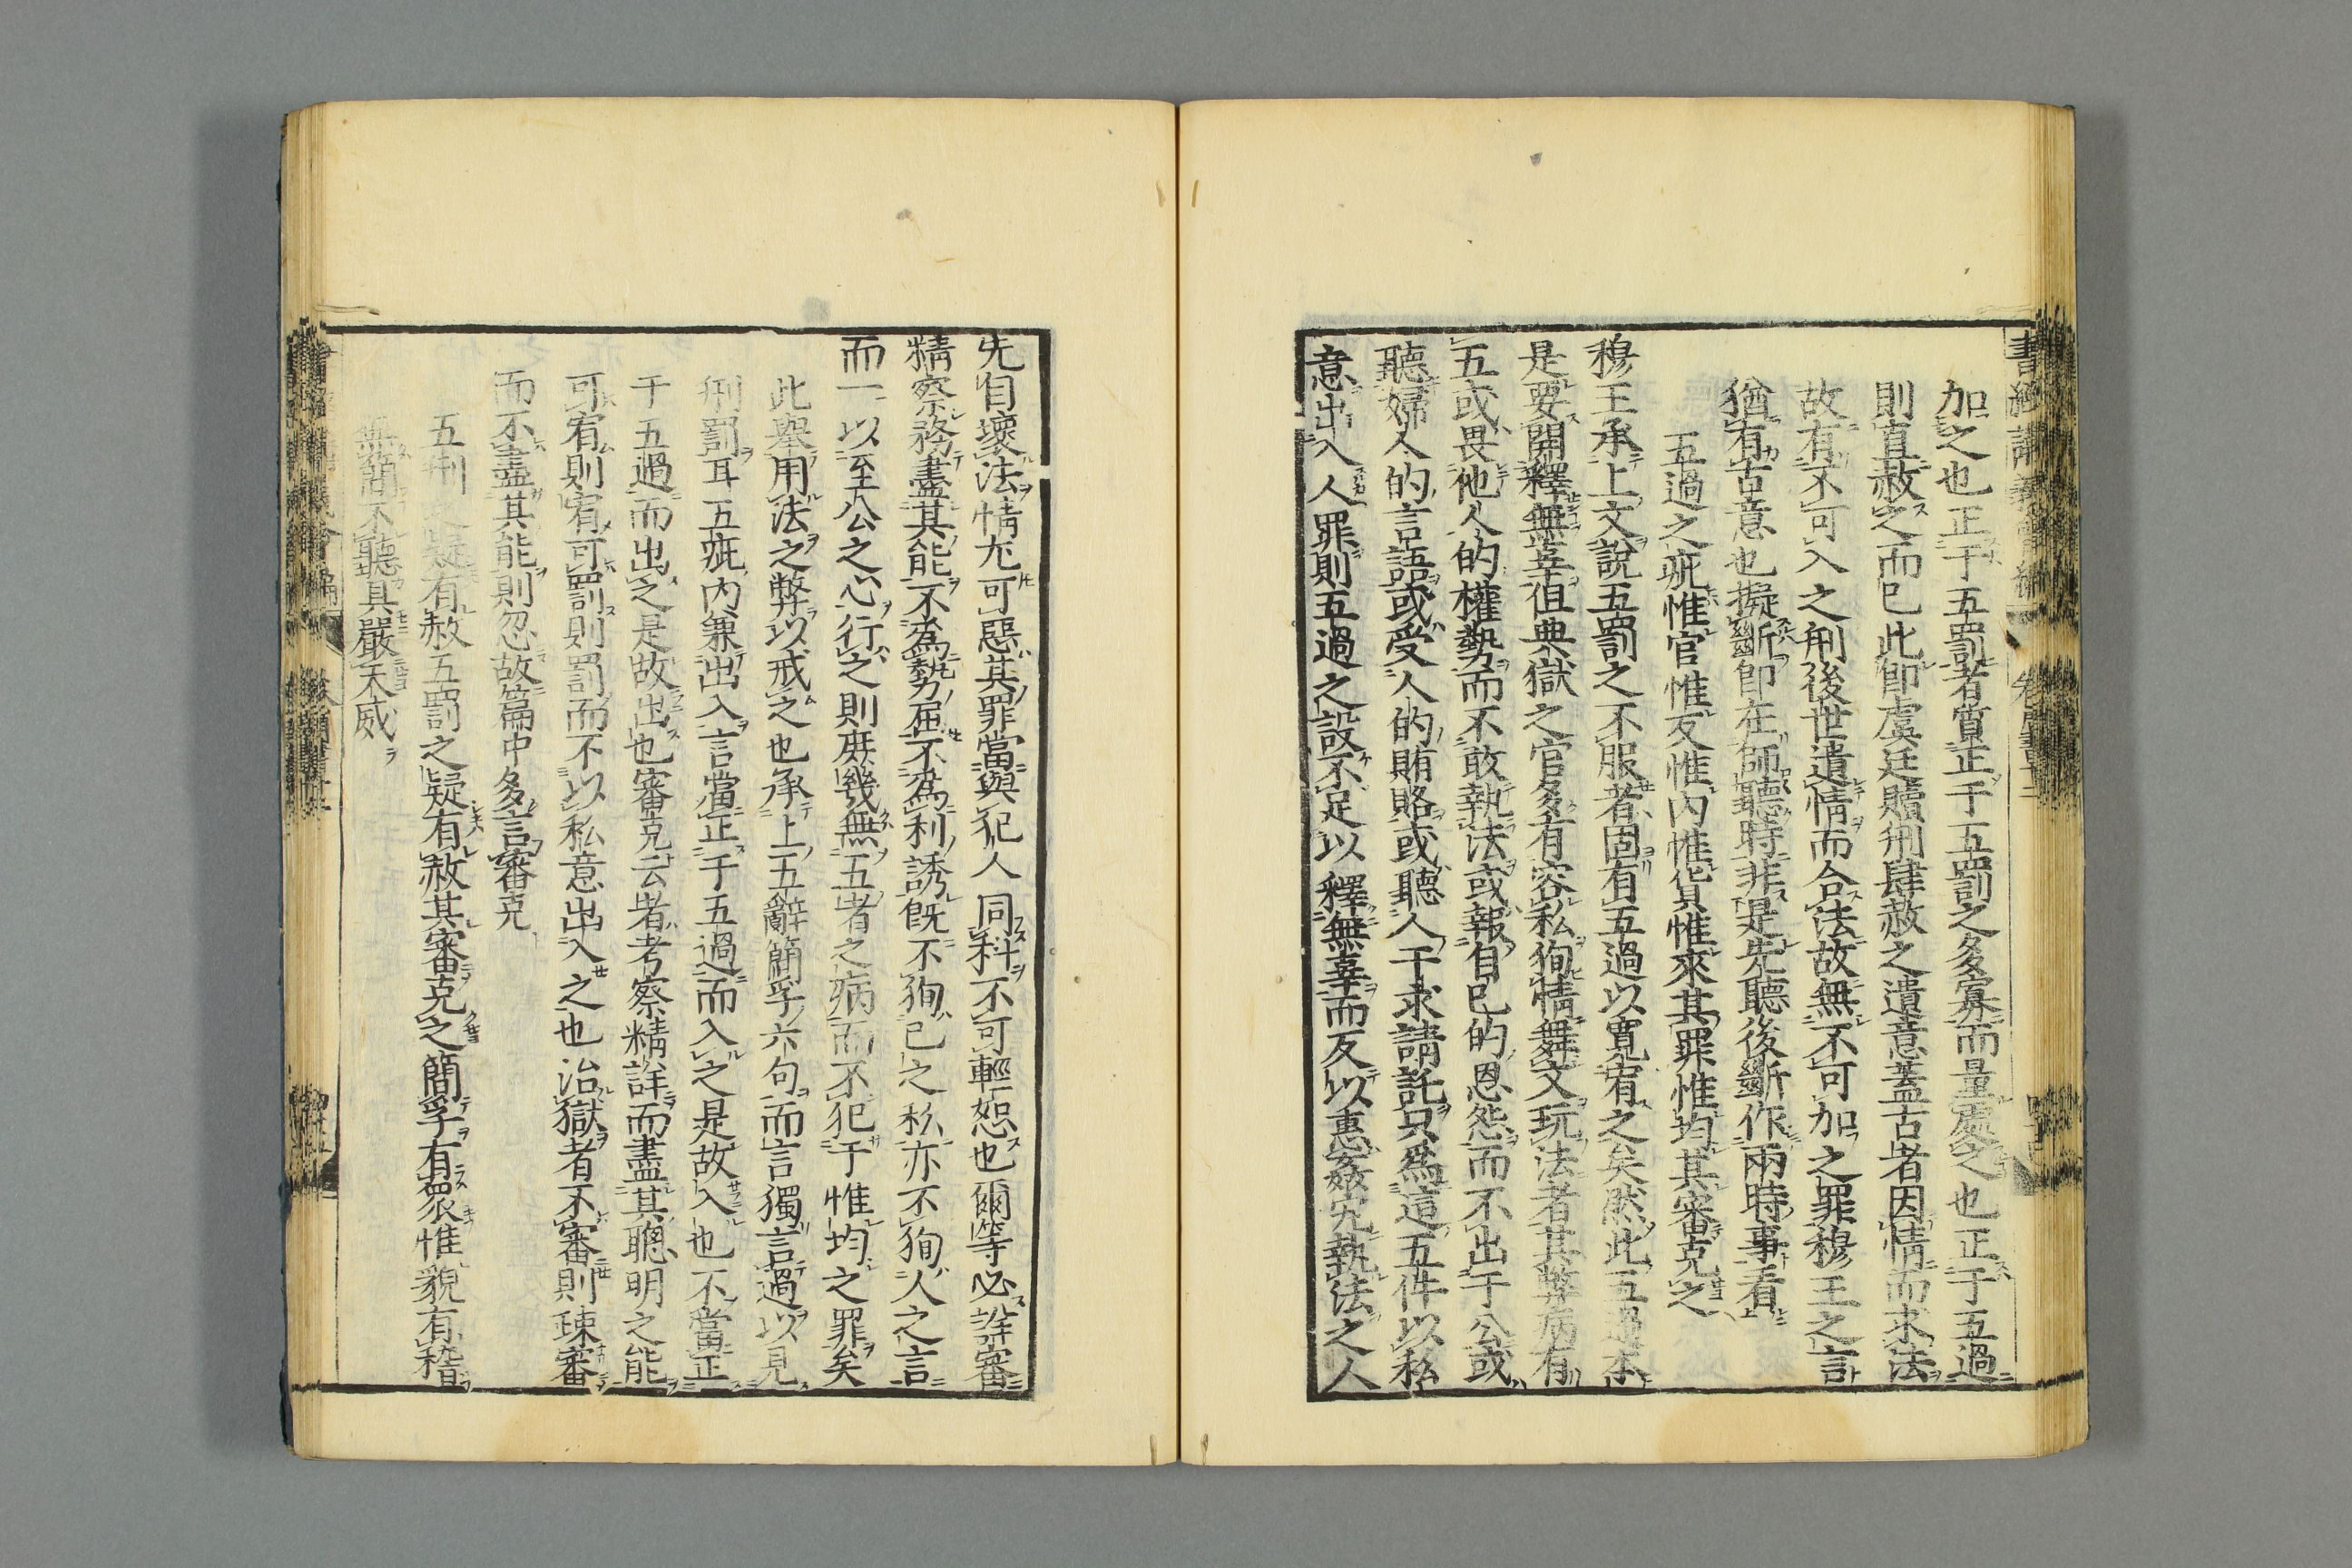 加之也正于五罰者質正于五罰之多寡而量處之也正于五過
則直赦之而已此卽虞廷贖刑肆赦之遺意蓋古者因情而求法
故有不可入之刑後世遺情而合法故無不可加之罪穆王之言
猶有古意也擬斷卽在師聽時非是先聽後斷作兩時事看
五過之疵惟官惟反惟內惟貨惟來其罪惟均其審克之
穆王承上文說五罰之不服者固有五過以寬宥之矣然此五過本
是要開釋無辜但典獄之官多有容私狥情舞文玩法者其弊病有
五或畏他人的權勢而不敢執法或報自己的恩怨而不出于公或
聽婦人的言語或受人的賄賂或聽人干求請託只爲這五件以私
意出入人罪則五過之設不足以釋無辜而反以惠姦宄執法之人
先自壞法情尤可惡其罪當與犯人同科不可輕恕也爾等必詳審
精察務盡其能不爲勢屈不爲利誘旣不狥己之私亦不狥人之言
而一以至公之心行之則庶幾無五者之病而不犯于惟均之罪矣
此舉用法之弊以戒之也承上五辭簡孚六句而言獨言過以見
刑罰耳五疵內兼出入言當正于五過而入之是故入也不當正
于五過而出之是故出也審克云者考察精詳而盡其聰明之能
可宥則宥可罰則罰而不以私意出入之也治獄者不審則疎審
而不盡其能則忽故篇中多言審克
五刑之疑有赦五罰之疑有赦其審克之簡孚有衆惟貌有稽
無簡不聽具嚴天威